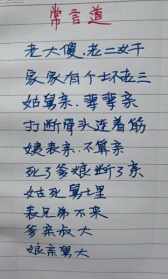 常言道
老大傻,老二奸
家家有个坏老三
姑舅亲,辈辈亲
打断骨头连着筋
姨表亲,不算亲
死了爹娘断了亲
姑死舅土里
表兄弟不来
爹亲叔大
娘亲舅大